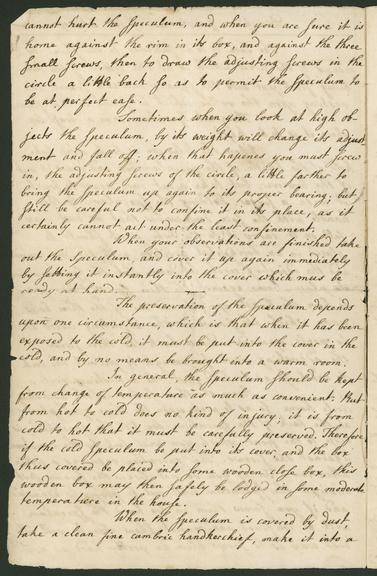 cannot hurt the Speculum, and when you are sure it is
home against the rim in its box, and against the three
small screws, then to draw the adjusting screws in the
circle a little back so as to permit the Speculum to
be at perfect ease.
Sometimes when you look at high ob-
jects the Speculum, by its weight will change its adjust
ment and fall off; when that happens you must screw
in, the adjusting screws of the circle, a little farther to
bring the Speculum up again to its proper bearing; but
still be careful not to confine it in its place, as it
certainly cannot act under the least confinement.
When your observations are finished take
out the Speculum, and cover it up again immediately
by putting it instantly into the cover which must be
ready at hand.
The preservation of the Speculum depends
upon one circumstance, which is that when it has been
exposed to the cold, it must be put into the cover in the
cold, and by no means be brought into a warm room.
In general, the Speculum should be kept
from change of temperature as much as convenient. But
from hot to cold does no kind of injury, it is from
cold to hot that it must be carefully preserved. Therefore
if the cold Speculum be put into its cover, and the box
thus covered be placed into some wooden close box, this
wooden box may then safely be lodged in some moderate
temperature in the house.
When the Speculum is covered by dust,
take a clean fine cambric handkerchief, make it into a